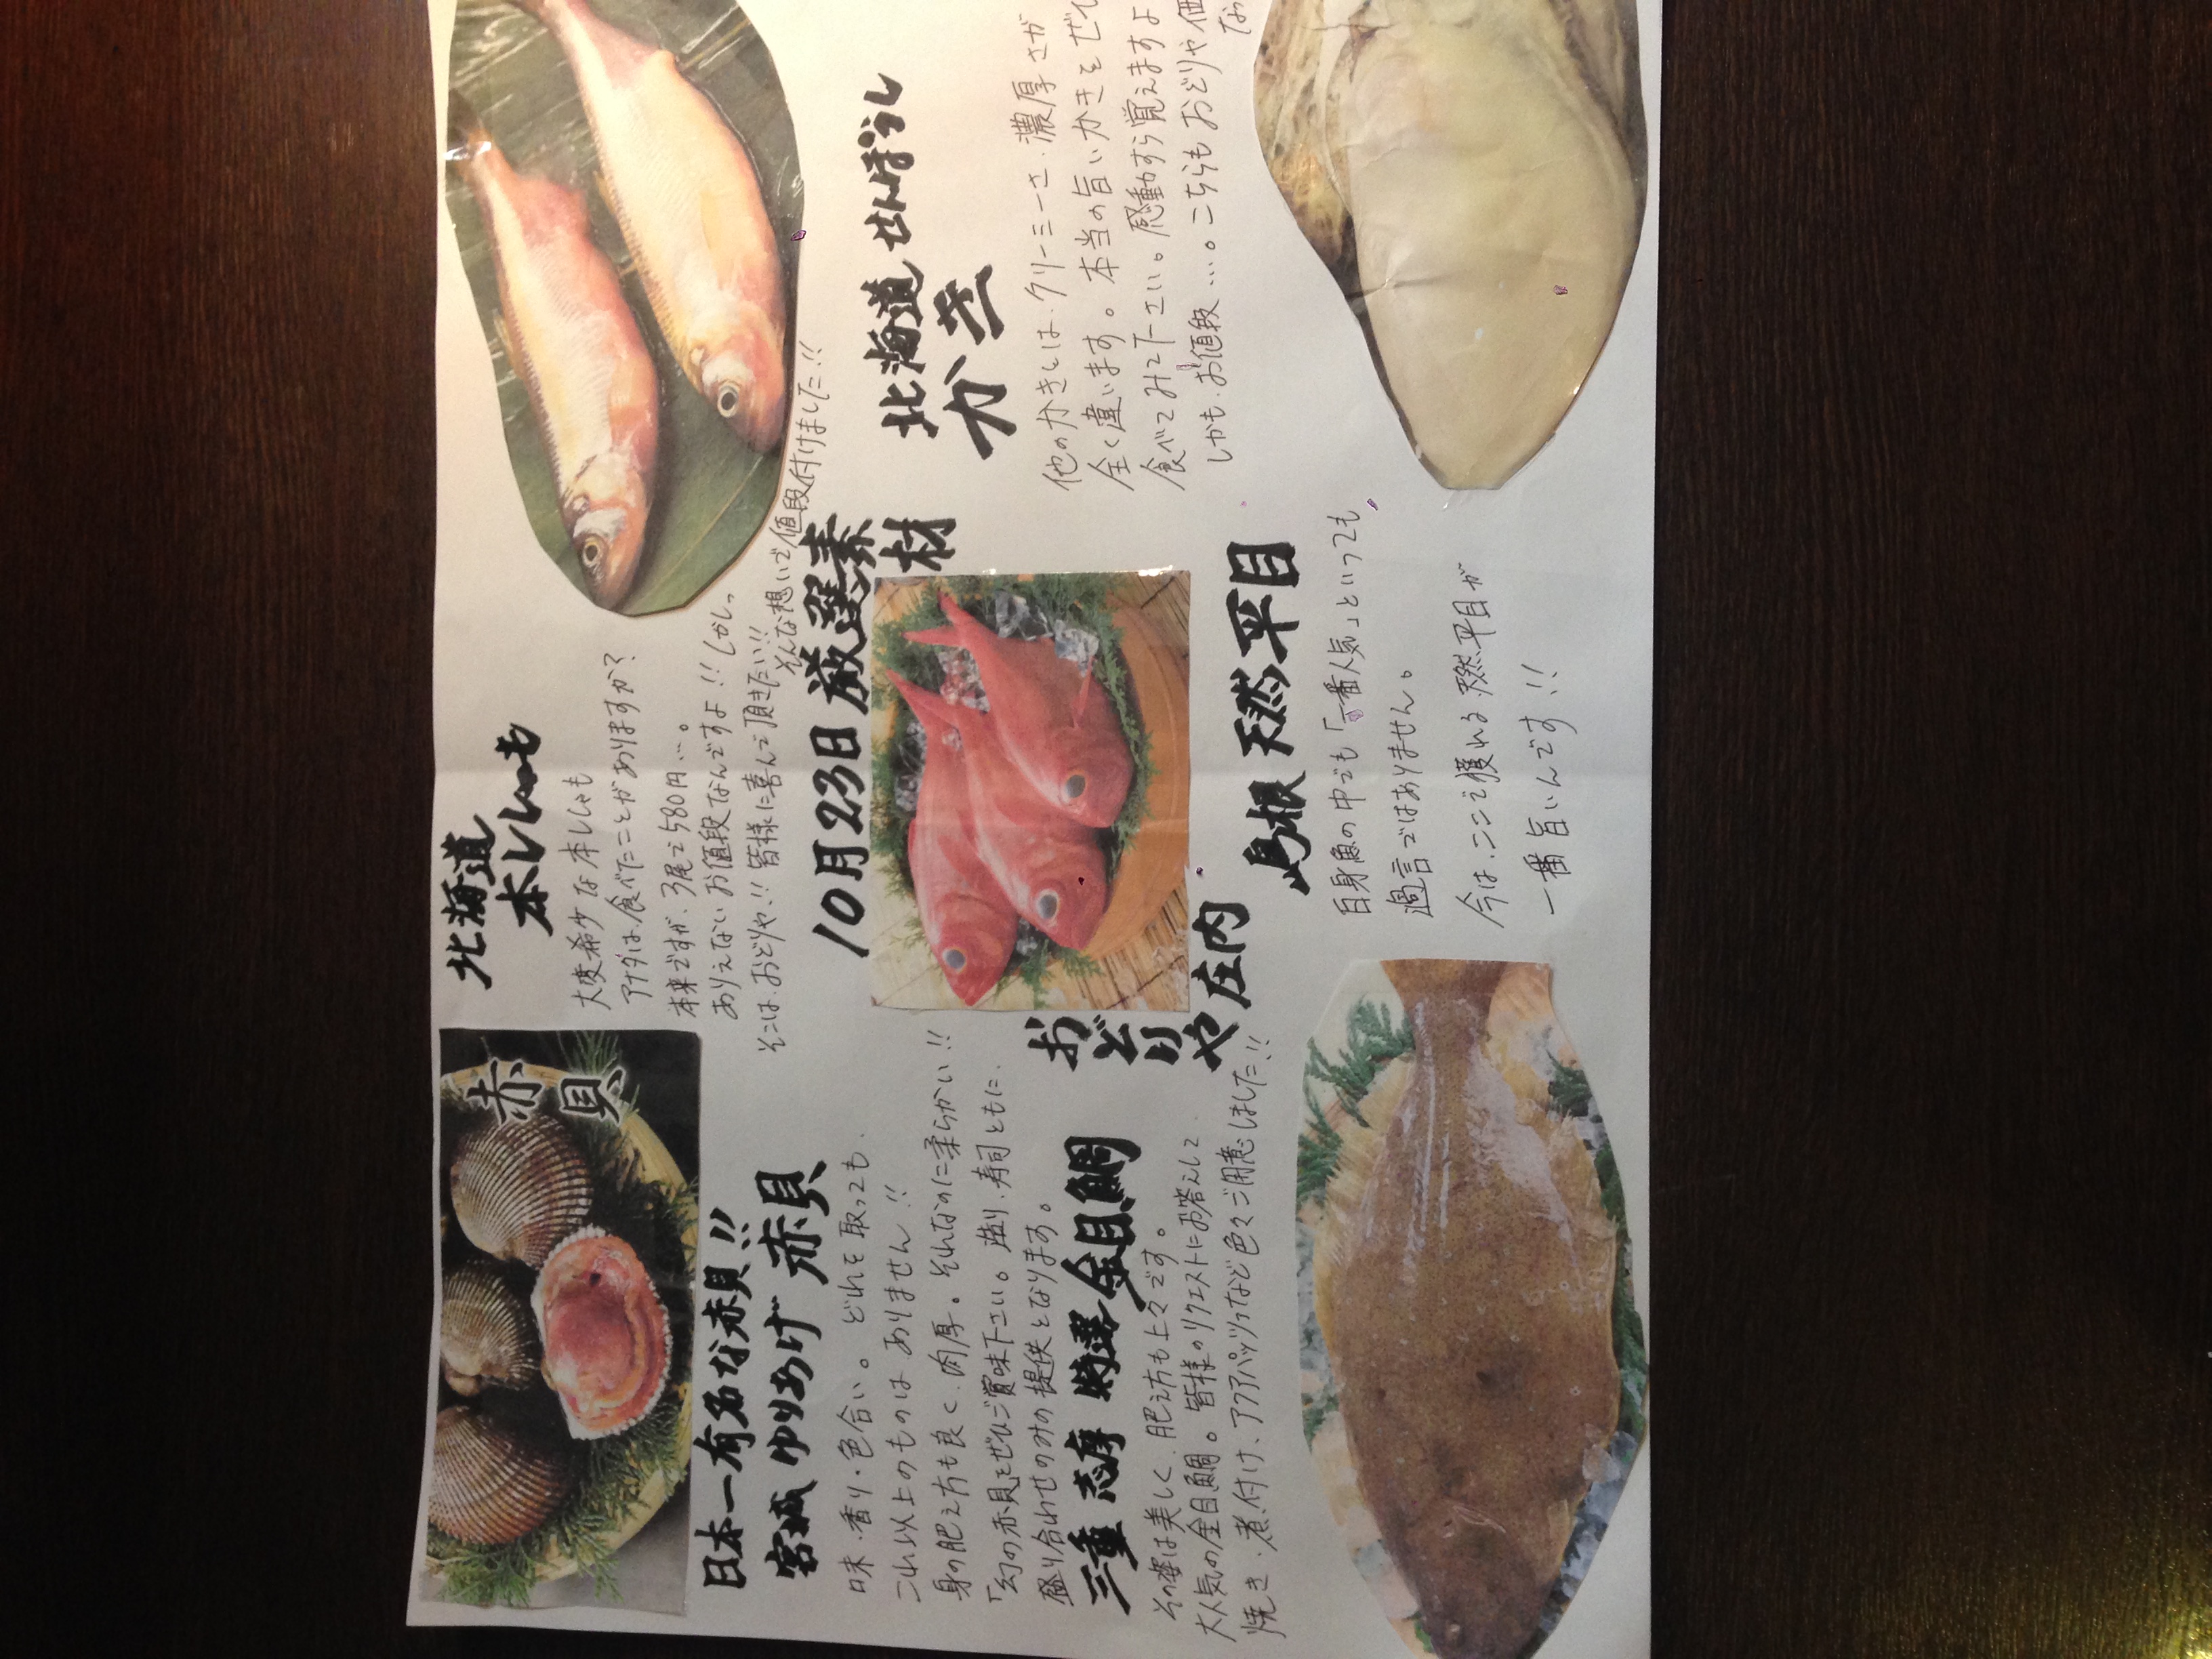 赤
貝
日本一有名な赤貝!!
宮城 ゆりあげ 赤貝
味・香り・色合い。どれを取っても、
これ以上のものは ありません!!
身の肥え方も良く、肉厚。それなのに柔らかい!!
「幻の赤貝」をぜひご賞味下さい。造り、寿司ともに、
盛り合わせのみの提供となります。
三重 志摩 特選 金目鯛
その姿は美しく、肥え方も上々です。
大人気の金目鯛。皆様のリクエストにお答えして、
焼き・煮付け、アクアパッツァなど色々ご用意しました!!
北海道
本ししゃも
大変希少な本ししゃも
アナタは、食べたことがありますか?
本来ですが、3尾で580円…。
ありえないお値段なんですよ!!しかしっ
そこは、おどりや!!皆様に喜んで頂きたい!!
そんな想いで値段付けました!!
10月23日 厳選素
材
おどりや 庄内
島根 天然平目
白身魚の中でも「一番人気」といっても
過言ではありません。
今は、ここで獲れる天然平目が
一番旨いんです!!
北海道 せんぽうし
カキ
他のかきとは、クリーミーさ、濃厚さが
全く違います。本当の旨いかきをぜひ
食べてみて下さい。感動すら覚えますよ
しかも、お値段…。こちらもおどりや価
な